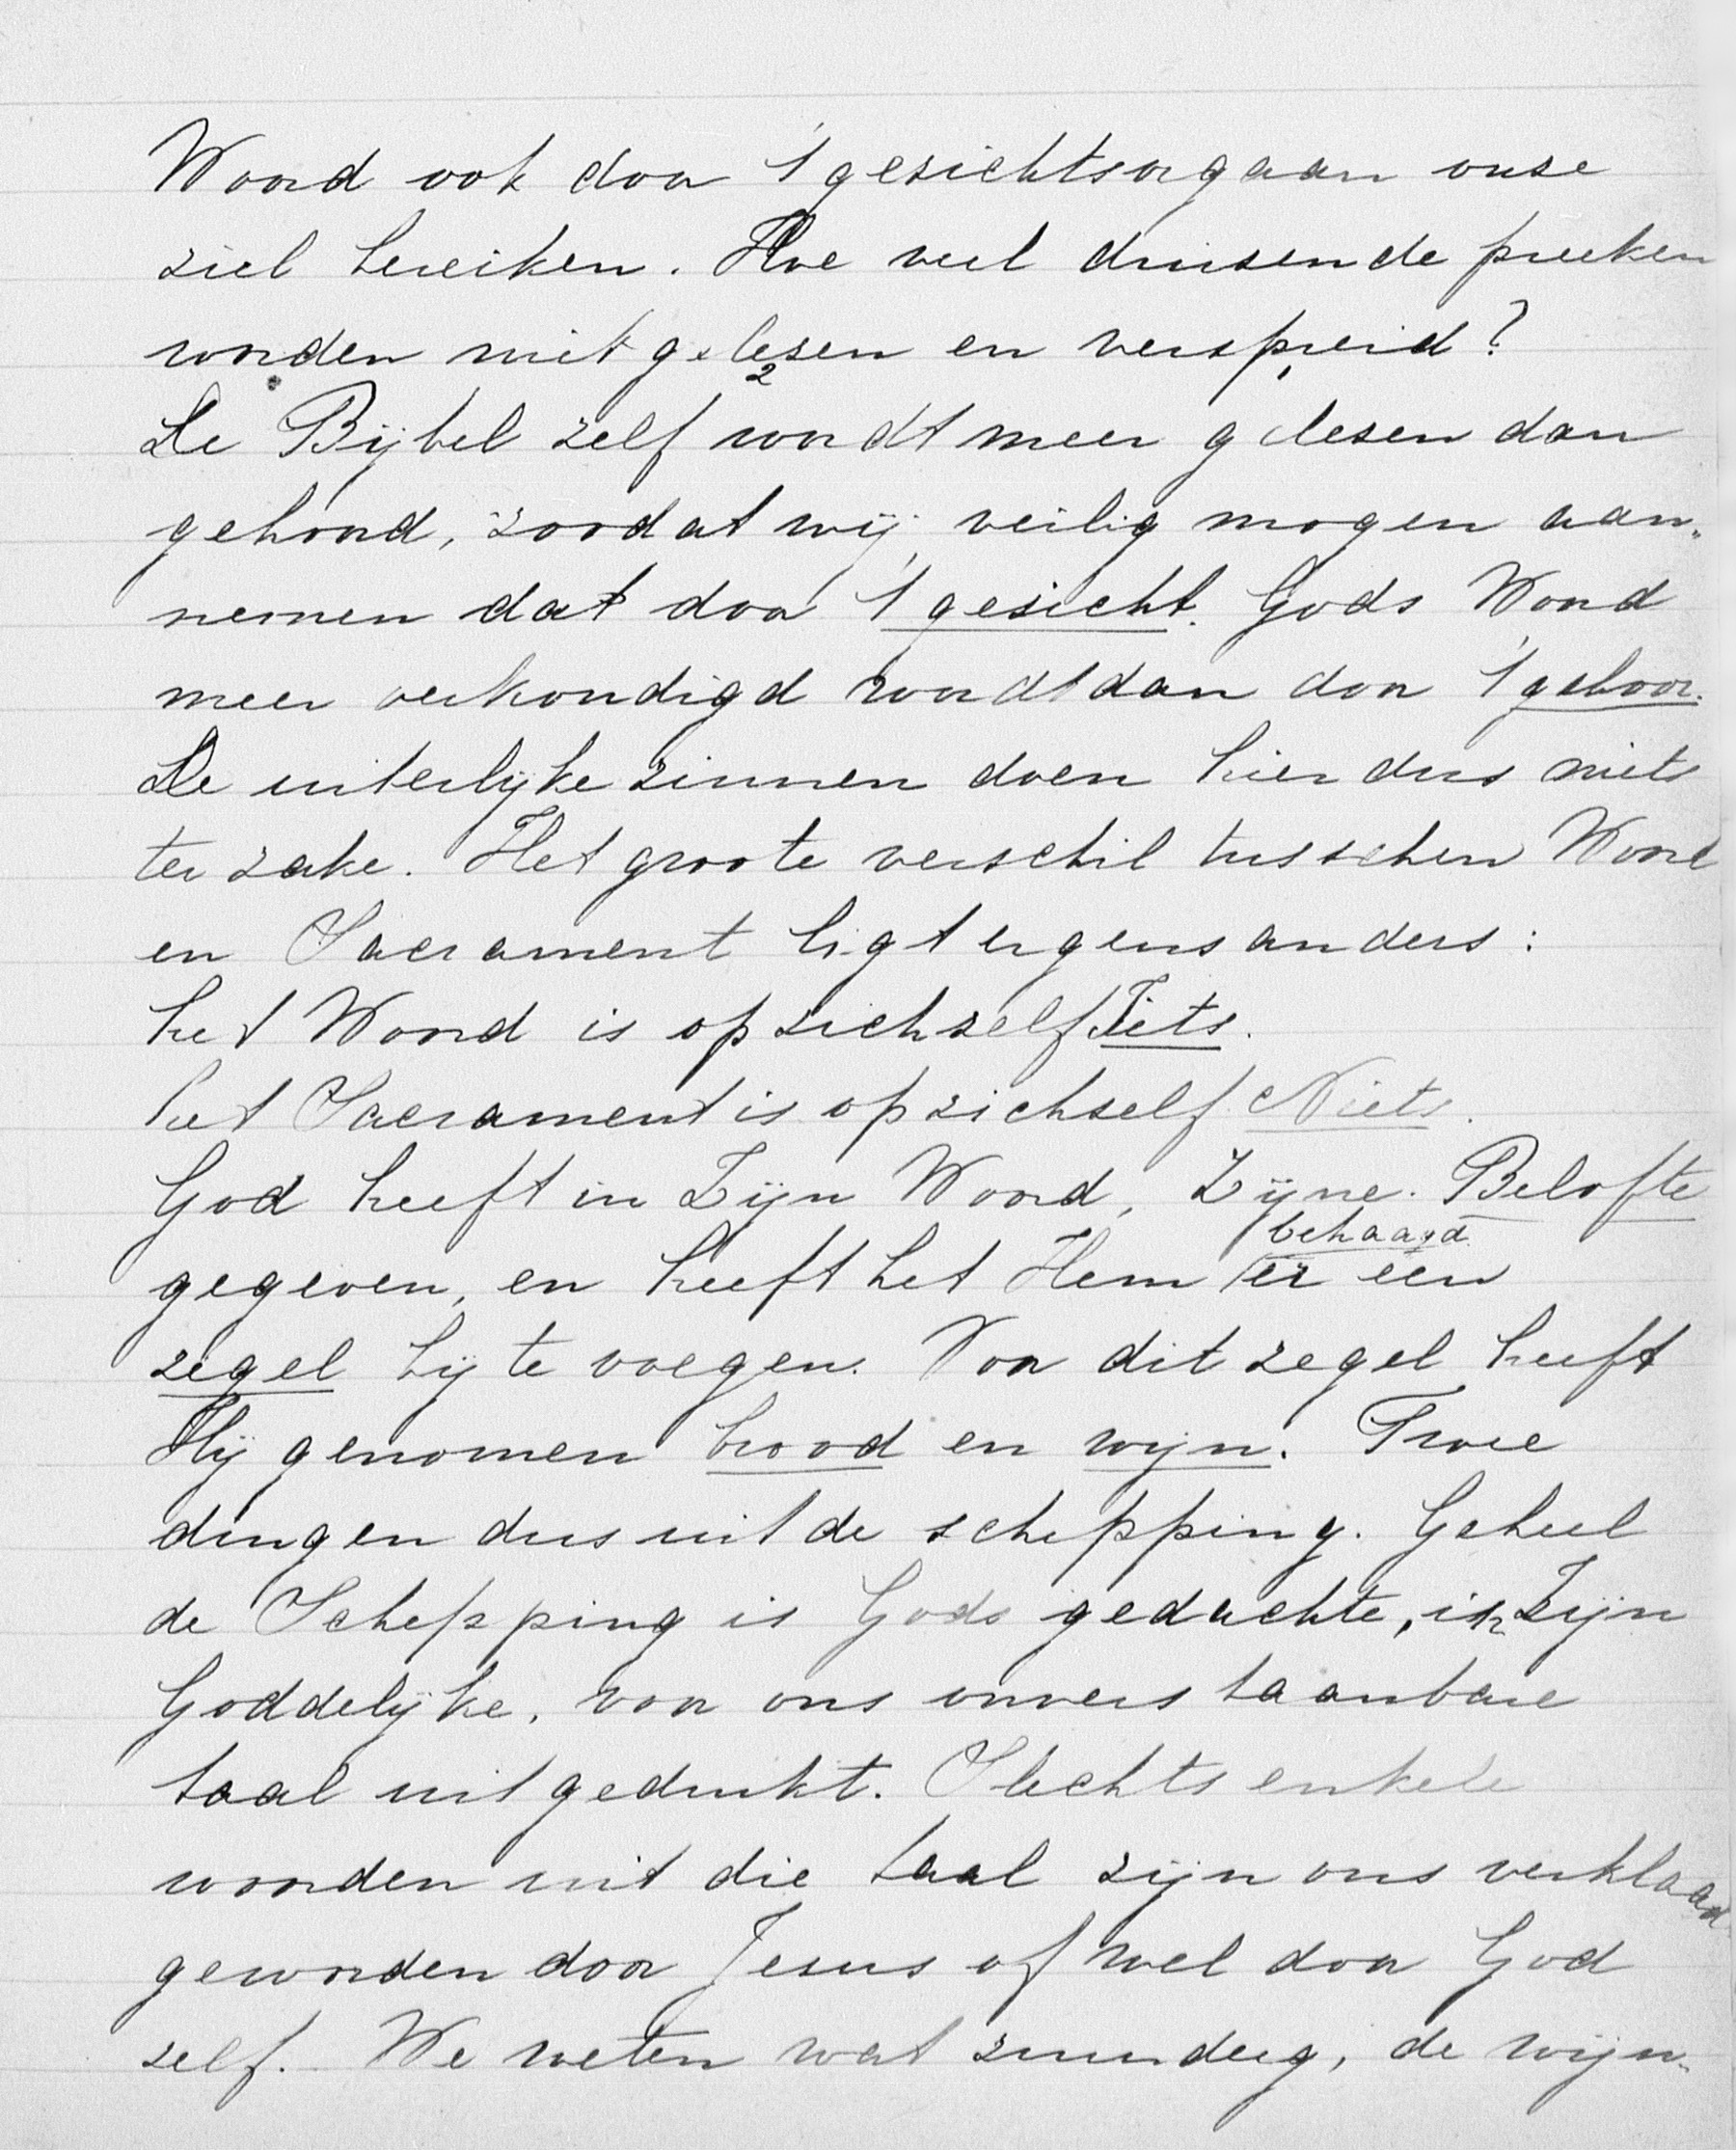 Woord ook door 't gezichtsorgaan onze
ziel bereiken. Hoe veel duizende preeken
worden niet gelezen en verspreid?
De Bijbel zelf wordt meer gelezen dan
gehoord, zoodat wij veilig mogen aan-
nemen dat door 't gezicht Gods Woord
meer verkondigd wordt dan door 't gehoor.
De uiterlijke zinnen doen hier dus niets
ter zake. Het groote verschil tusschen Woord
en Sacrament ligt ergens anders:
het Woord is op zichzelf Iets.
het Sacrament is op zichzelf Niets.
God heeft in Zijn Woord, Zijne Belofte
behaagd
gegeven, en heeft het Hem er een
zegel bij te voegen. Voor dit zegel heeft
Hij genomen brood en wijn. Twee
dingen dus uit de schepping. Geheel
de Schepping is Gods gedachte, in Zijn
Goddelijke, voor ons onverstaanbare
taal uitgedrukt. Slechts enkele
woorden uit die taal zijn ons verklaard
geworden door Jezus of wel door God
zelf. We weten wat zuurdeeg, de wijn-